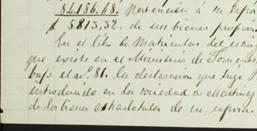 $6136.68, pertenencia á mi espo
$ 5813,32. de sus bienes propios
En el libro de Matrículas del
que existe en el Ministerio de Fomento
bajo el nº. 81. la declaración que hizo
introducido en la sociedad de
de los bienes de mi esposa